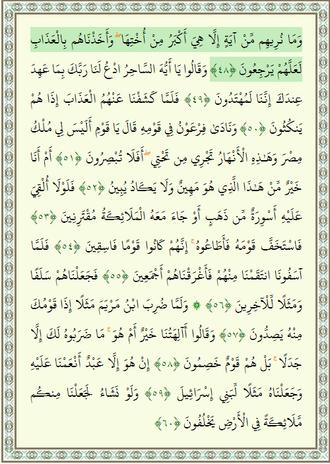 وَمَا نُرِيهِم مِّنْ آيَةٍ إِلَّا هِيَ أَكْبَرُ مِنْ أُخْتِهَا ۖ وَأَخَذْنَاهُم بِالْعَذَابِ
لَعَلَّهُمْ يَرْجِعُونَ ﴿٤٨﴾ وَقَالُوا يَا أَيُّهَ السَّاحِرُ ادْعُ لَنَا رَبَّكَ بِمَا عَهِدَ
عِندَكَ إِنَّنَا لَمُهْتَدُونَ ﴿٤٩﴾ فَلَمَّا كَشَفْنَا عَنْهُمُ الْعَذَابَ إِذَا هُمْ
يَنكُثُونَ ﴿٥٠﴾ وَنَادَىٰ فِرْعَوْنُ فِي قَوْمِهِ قَالَ يَا قَوْمِ أَلَيْسَ لِي مُلْكُ
مِصْرَ وَهَٰذِهِ الْأَنْهَارُ تَجْرِي مِن تَحْتِي ۖ أَفَلَا تُبْصِرُونَ ﴿٥١﴾ أَمْ أَنَا
خَيْرٌ مِّنْ هَٰذَا الَّذِي هُوَ مَهِينٌ وَلَا يَكَادُ يُبِينُ ﴿٥٢﴾ فَلَوْلَا أُلْقِيَ
عَلَيْهِ أَسْوِرَةٌ مِّن ذَهَبٍ أَوْ جَاءَ مَعَهُ الْمَلَائِكَةُ مُقْتَرِنِينَ ﴿٥٣﴾
فَاسْتَخَفَّ قَوْمَهُ فَأَطَاعُوهُ ۚ إِنَّهُمْ كَانُوا قَوْمًا فَاسِقِينَ ﴿٥٤﴾ فَلَمَّا
آسَفُونَا انتَقَمْنَا مِنْهُمْ فَأَغْرَقْنَاهُمْ أَجْمَعِينَ ﴿٥٥﴾ فَجَعَلْنَاهُمْ سَلَفًا
وَمَثَلًا لِّلْآخِرِينَ ﴿٥٦﴾ ۞ وَلَمَّا ضُرِبَ ابْنُ مَرْيَمَ مَثَلًا إِذَا قَوْمُكَ
مِنْهُ يَصِدُّونَ ﴿٥٧﴾ وَقَالُوا أَآلِهَتُنَا خَيْرٌ أَمْ هُوَ ۚ مَا ضَرَبُوهُ لَكَ إِلَّا
جَدَلًا ۚ بَلْ هُمْ قَوْمٌ خَصِمُونَ ﴿٥٨﴾ إِنْ هُوَ إِلَّا عَبْدٌ أَنْعَمْنَا عَلَيْهِ
وَجَعَلْنَاهُ مَثَلًا لِّبَنِي إِسْرَائِيلَ ﴿٥٩﴾ وَلَوْ نَشَاءُ لَجَعَلْنَا مِنكُم
مَّلَائِكَةً فِي الْأَرْضِ يَخْلُفُونَ ﴿٦٠﴾